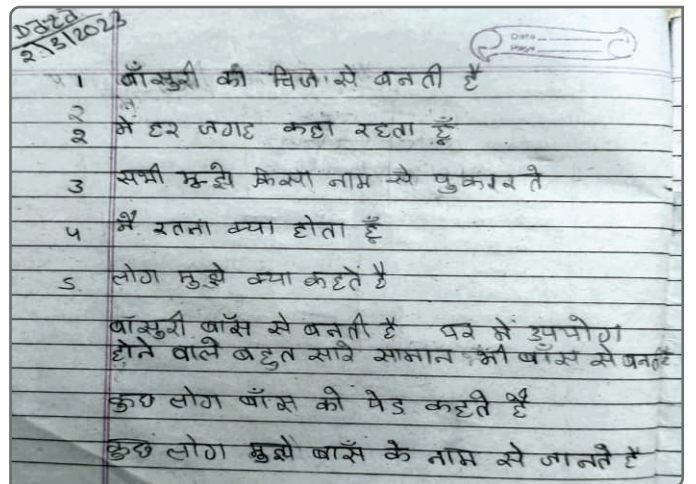 Date
2/3/2023
Date
1 बाँसुरी की चिज से बनती है
2
2 में हर जगह कहा रहता हूँ
3 सभी मुझे किस नाम से पुकार ते
4 मैं रतना क्या होता हूँ
5 लोग मुझे क्या कहते है
बाँसुरी बाँस से बनती है घर में उपयोग
होने वाले बहुत सारे सामान भी बाँस से बनते है
कुछ लोग बाँस को पेड कहते है
कुछ लोग मुझे बाँस के नाम से जानते है